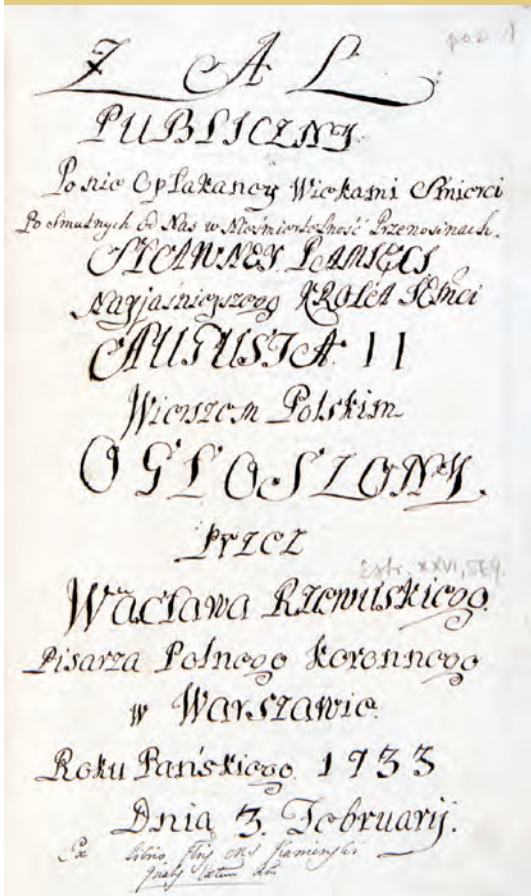 poz. 1
ŻAL
PUBLICZNY
Po nie Opłakaney Wiekami Smierci
Po Smutnych od Nas w Nieśmiertelność Przenosinach.
SŁAWNEY PAMIĘCI
Nayjaśnieyszego KROLA JEMci
AUGUSTA II
Wierszem Polskim
OGŁOSZONY
przez
Estr. XXVI, 569.
Wacława Rzewuskiego
Pisarza Polnego Koronnego
w Warszawie
Roku Pańskiego 1733
Dnia 3. February.
Ex Libris Kamieński